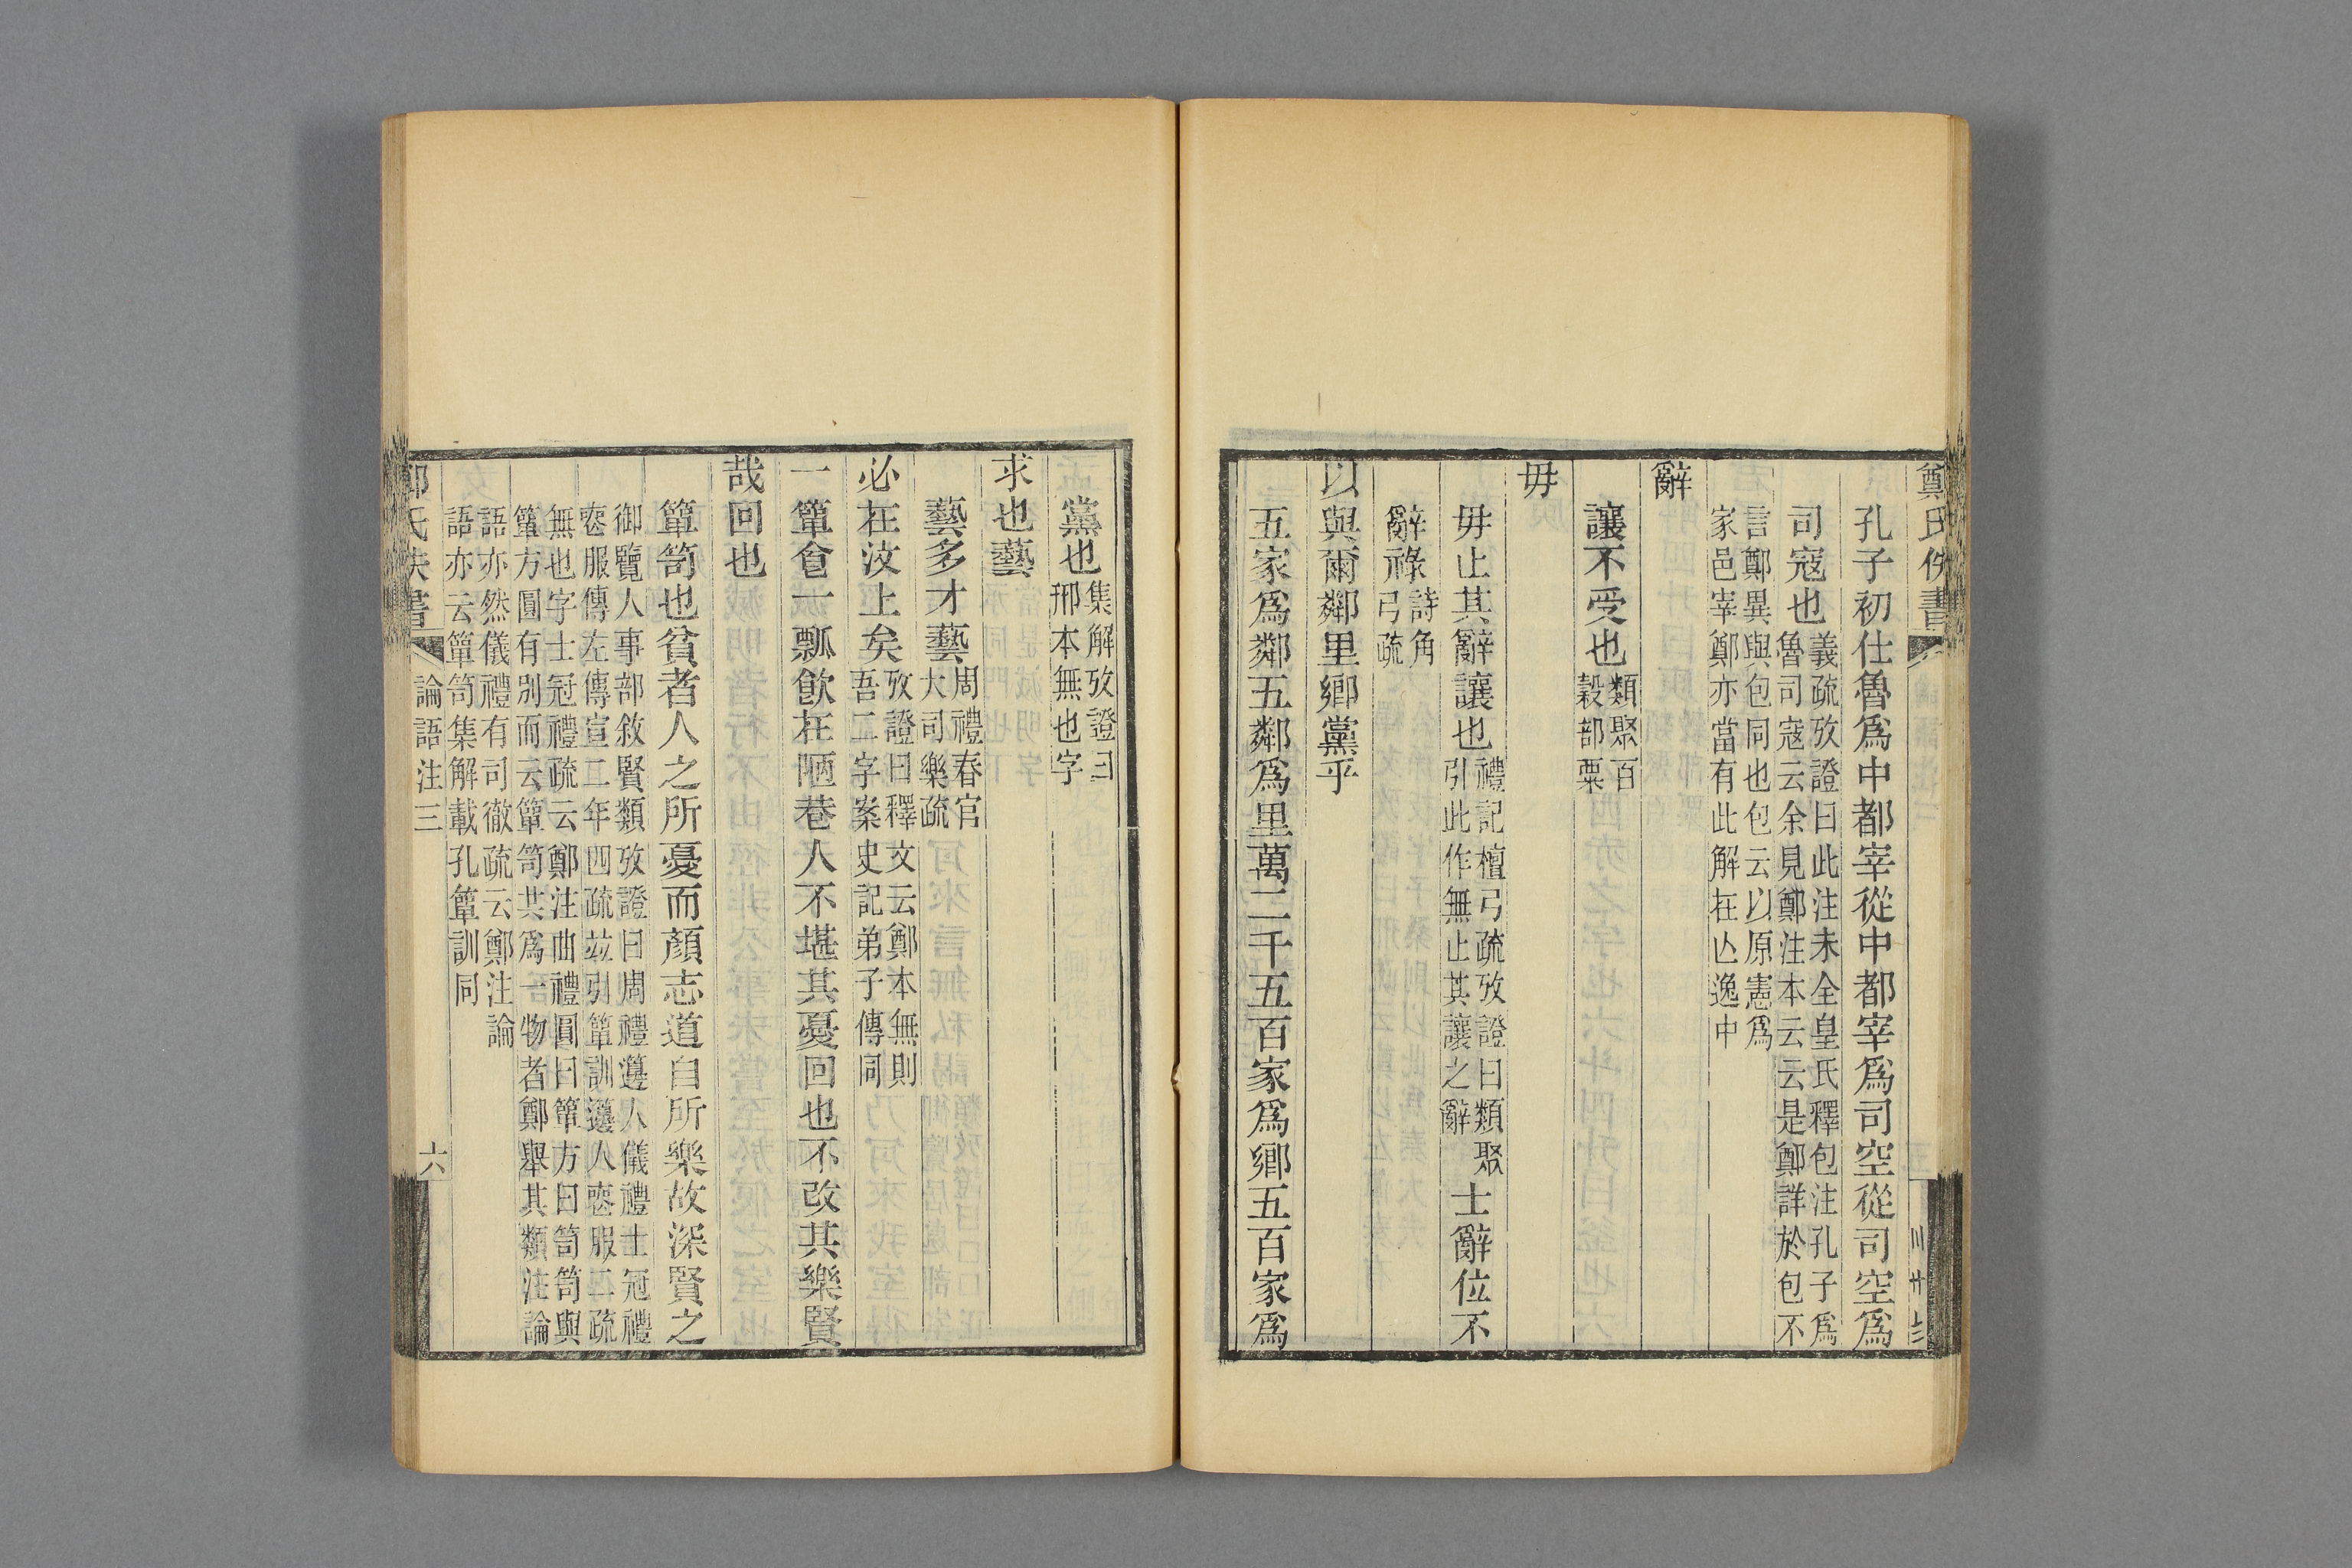 鄭氏佚書
孔子初仕魯爲中都宰從中都宰爲司空從司空爲
司寇也義疏攷證曰此注未全皇氏釋包注孔子爲
魯司寇云余見鄭注本云云是鄭詳於包不
言鄭異與包同也包云以原憲爲
家邑宰鄭亦當有此解在亾逸中
辭
讓不受也類聚百
穀部粟
毋
毋止其辭讓也禮記檀弓疏攷證曰類聚
引此作無止其讓之辭
士辭位不
辭祿詩角
弓疏
以與爾鄰里鄉黨乎
五家爲鄰五鄰爲里萬二千五百家爲鄉五百家爲
黨也集解攷證曰
邢本無也字
求也藝
藝多才藝周禮春官
大司樂疏
必在汶上矣攷證曰釋文云鄭本無則
吾二字案史記弟子傳同
一簞㑹一瓢飮在陋巷人不堪其憂回也不改其樂賢
哉回也
簞笥也貧者人之所憂而顏志道自所樂故深賢之
御覽人事部敘賢類攷證曰周禮籩人儀禮士冠禮
喪服傳左傳宣二年四疏竝引簞訓籩人喪服二疏
無也字士冠禮疏云鄭注曲禮圓曰簞方曰笥笥與
簞方圓有別而云簞笥共爲一物者鄭舉其類注論
語亦然儀禮有司徹疏云鄭注論
語亦云簞笥集解載孔簞訓同
論語注三
六